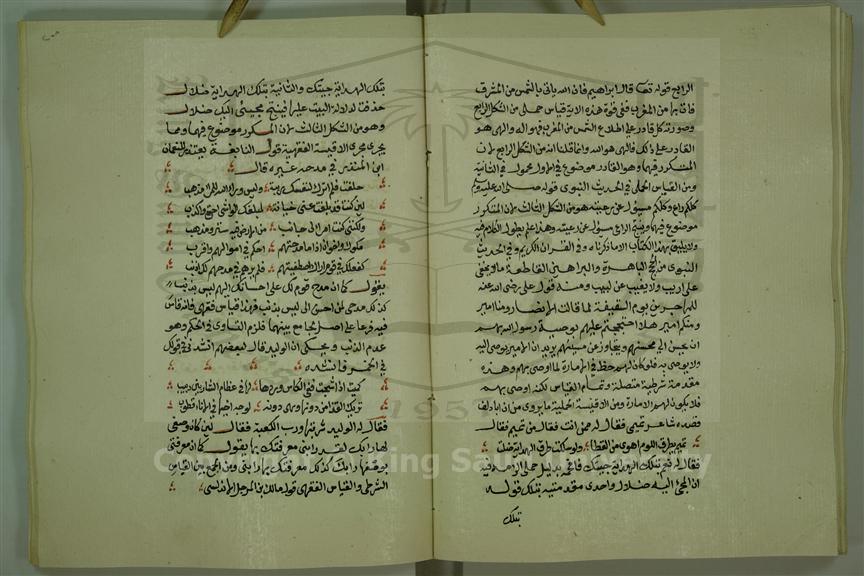 الرابع قوله تعا قال ابراهيم فان الله ياتى بالشمس من المشرق
فات بها من المغرب ففى قوة هذه الاية قياس حملى من الشكل الرابع
وصورته كل قادر على اطلاع الشمس من المغرب فهو اله والهى هو
القادر على ذلك فالهى هو الله وانما قلنا انه من الشكل الرابع لان
المتكرر فيها وهو القادر موضوع فى الاول محمول فى الثانية
ومن القياس الحملى فى الحديث النبوى قوله صلى الله عليه وسلم
كلكم راع وكلكم مسؤل عن رعيته هو من الشكل الثالث لان المتكرر
موضوع فيها ونتيجة الراعى مسؤل عن رعيته وهذا علم يطول الكلام فيه
ولا يليق بهذا الكتاب الا ما ذكرناه وفى القران الكريم وفى الحديث
النبوى من الحجج الباهرة والبراهين القاطعة ما لا يخفى
على اريب ولا يغيب عن لبيب ومنه قول على رضى الله عنه
للمهاجرين يوم السقيفة لما قالت الانصار منا امير
ومنكم امير هلا احتججتم عليهم بوصية رسول الله بهم
ان يحسن الى محسنهم ويتجاوز عن مسيئهم يريد ان الامير يوصى اليه
ولا يوصى به فلو كان لهم حظ فى الامارة لما اوصى بهم وهذه
مقدمة شرطية متصلة وتمام القياس لكنه اوصى بهم
فلا يكون لهم الامارة ومن الاقيسة الحملية ما يروى من ان ابا دلف
قصده شاعر تميمى فقال له ممن انت فقال من تميم فقال
تميم بطرق اللوم اهدى من القطا ولو سلكت طرق الهداية ضلت
فقال له نعم بتلك الهداية جيتك فافحمه بدليل حملى الزمه فيه
ان المجئ اليه ضلال واحدى مقدمتيه بتلك قوله
بتلك
بتلك الهداية جيتك والثانية بتلك الهداية ضلال
حذفت لدلالة البيت عليها فينتج مجيئى اليك ضلال
وهو من الشكل الثالث لان المتكرر موضوع فيهما ومما
يجرى مجرى الاقيسة الفقهية قول النابغة يعتذر للنعمان
ابن المنذر فى مدحه غيره قال
حلفت فلم اترك لنفسك ريبة وليس وراء الله للمرء مذهب
لئن كنت قد بلغت عنى خيانة لمبلغك الواشى اغش واكذب
ولكننى كنت امرا لى جانب من الارض فيه مستراد ومذهب
ملوك واخوان اذا ما مدحتهم احكم فى اموالهم واقرب
كفعلك فى قوم اراك اصطفيتهم فلم ترهم فى مدحهم لك اذنبوا
يقول كما ان مدح قوم لك على احسانك اليهم ليس بذنب
كذلك مدحى لمن احسن الى ليس بذنب فهذا قياس فقهى فانه قاس
فيه فرعا على اصل بجامع بينهما فلزم التساوى فى الحكم وهو
عدم الذنب ويحكى ان الوليد قال لبعضهم انشدنى قولك
فى الخمر فانشده
كميت اذا شجت ففى الكاس وردها لها فى عظام الشاربين دبيب
تريك القذا من دونها وهى دونه لوجه اخيها فى الاناء قطوب
فقال له الوليد شربتها ورب الكعبة فقال لئن كان وصفى
لها رابك لقد رابنى معرفتك بها يقول كما ان معرفتى
بوصفها رابك كذلك معرفتك بها رابنى ومن الجمع بين القياس
الشرطى والقياس الفقهى قول مالك بن المرحل الاندلسى